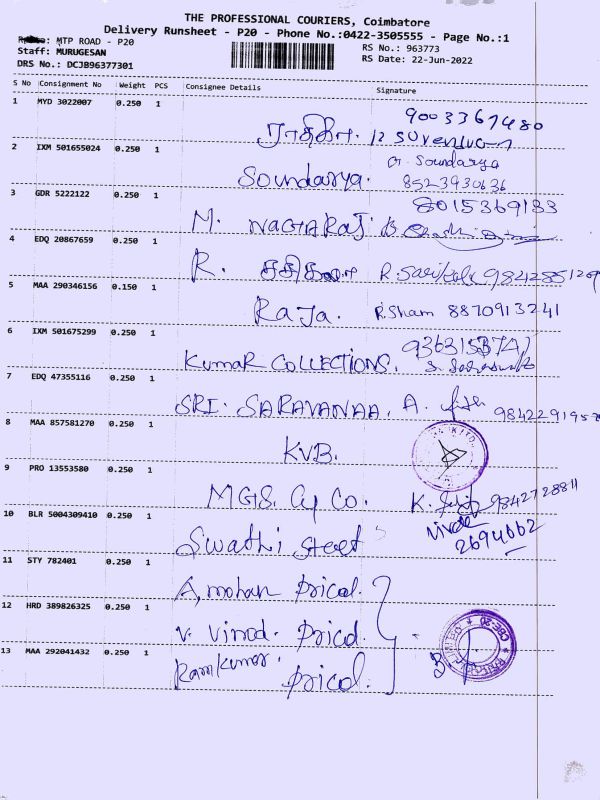 THE PROFESSIONAL COURIERS, Coimbatore
Delivery Runsheet - P20 - Phone No.:0422-3505555 - Page No.:1
MTP ROAD - P20
RS No.: 963773
Staff: MURUGESAN
RS Date: 22-Jun-2022
DRS No.: DCJB96377301
S No Consignment No Weight PCS Consignee Details Signature
1 MYD 3022007 0.250 1 ராதிகா. 9003367480
2 IXM 501655024 0.250 1 Soundarya. G. Soundarya
8523930636
3 GDR 5222122 0.250 1 M. NAGARAJ 8015369133
4 EDQ 20867659 0.250 1 R. சசிகலா
5 MAA 290346156 0.150 1 RaJa. R.Sham 8870913241
6 IXM 501675299 0.250 1 KumaR COLLECTIONS.
7 EDQ 47355116 0.250 1 SRI. SARAVANAA. A.
8 MAA 857581270 0.250 1 KVB.
9 PRO 13553580 0.250 1 MGS. Cy Co. K. 9842728811
10 BLR 5004309410 0.250 1 Swathi steel 2694662
11 STY 782401 0.250 1 A, mohan pricol.
12 HRD 389826325 0.250 1 V. Vinod. Pricol.
13 MAA 292041432 0.250 1 Ramkumar. Pricol.